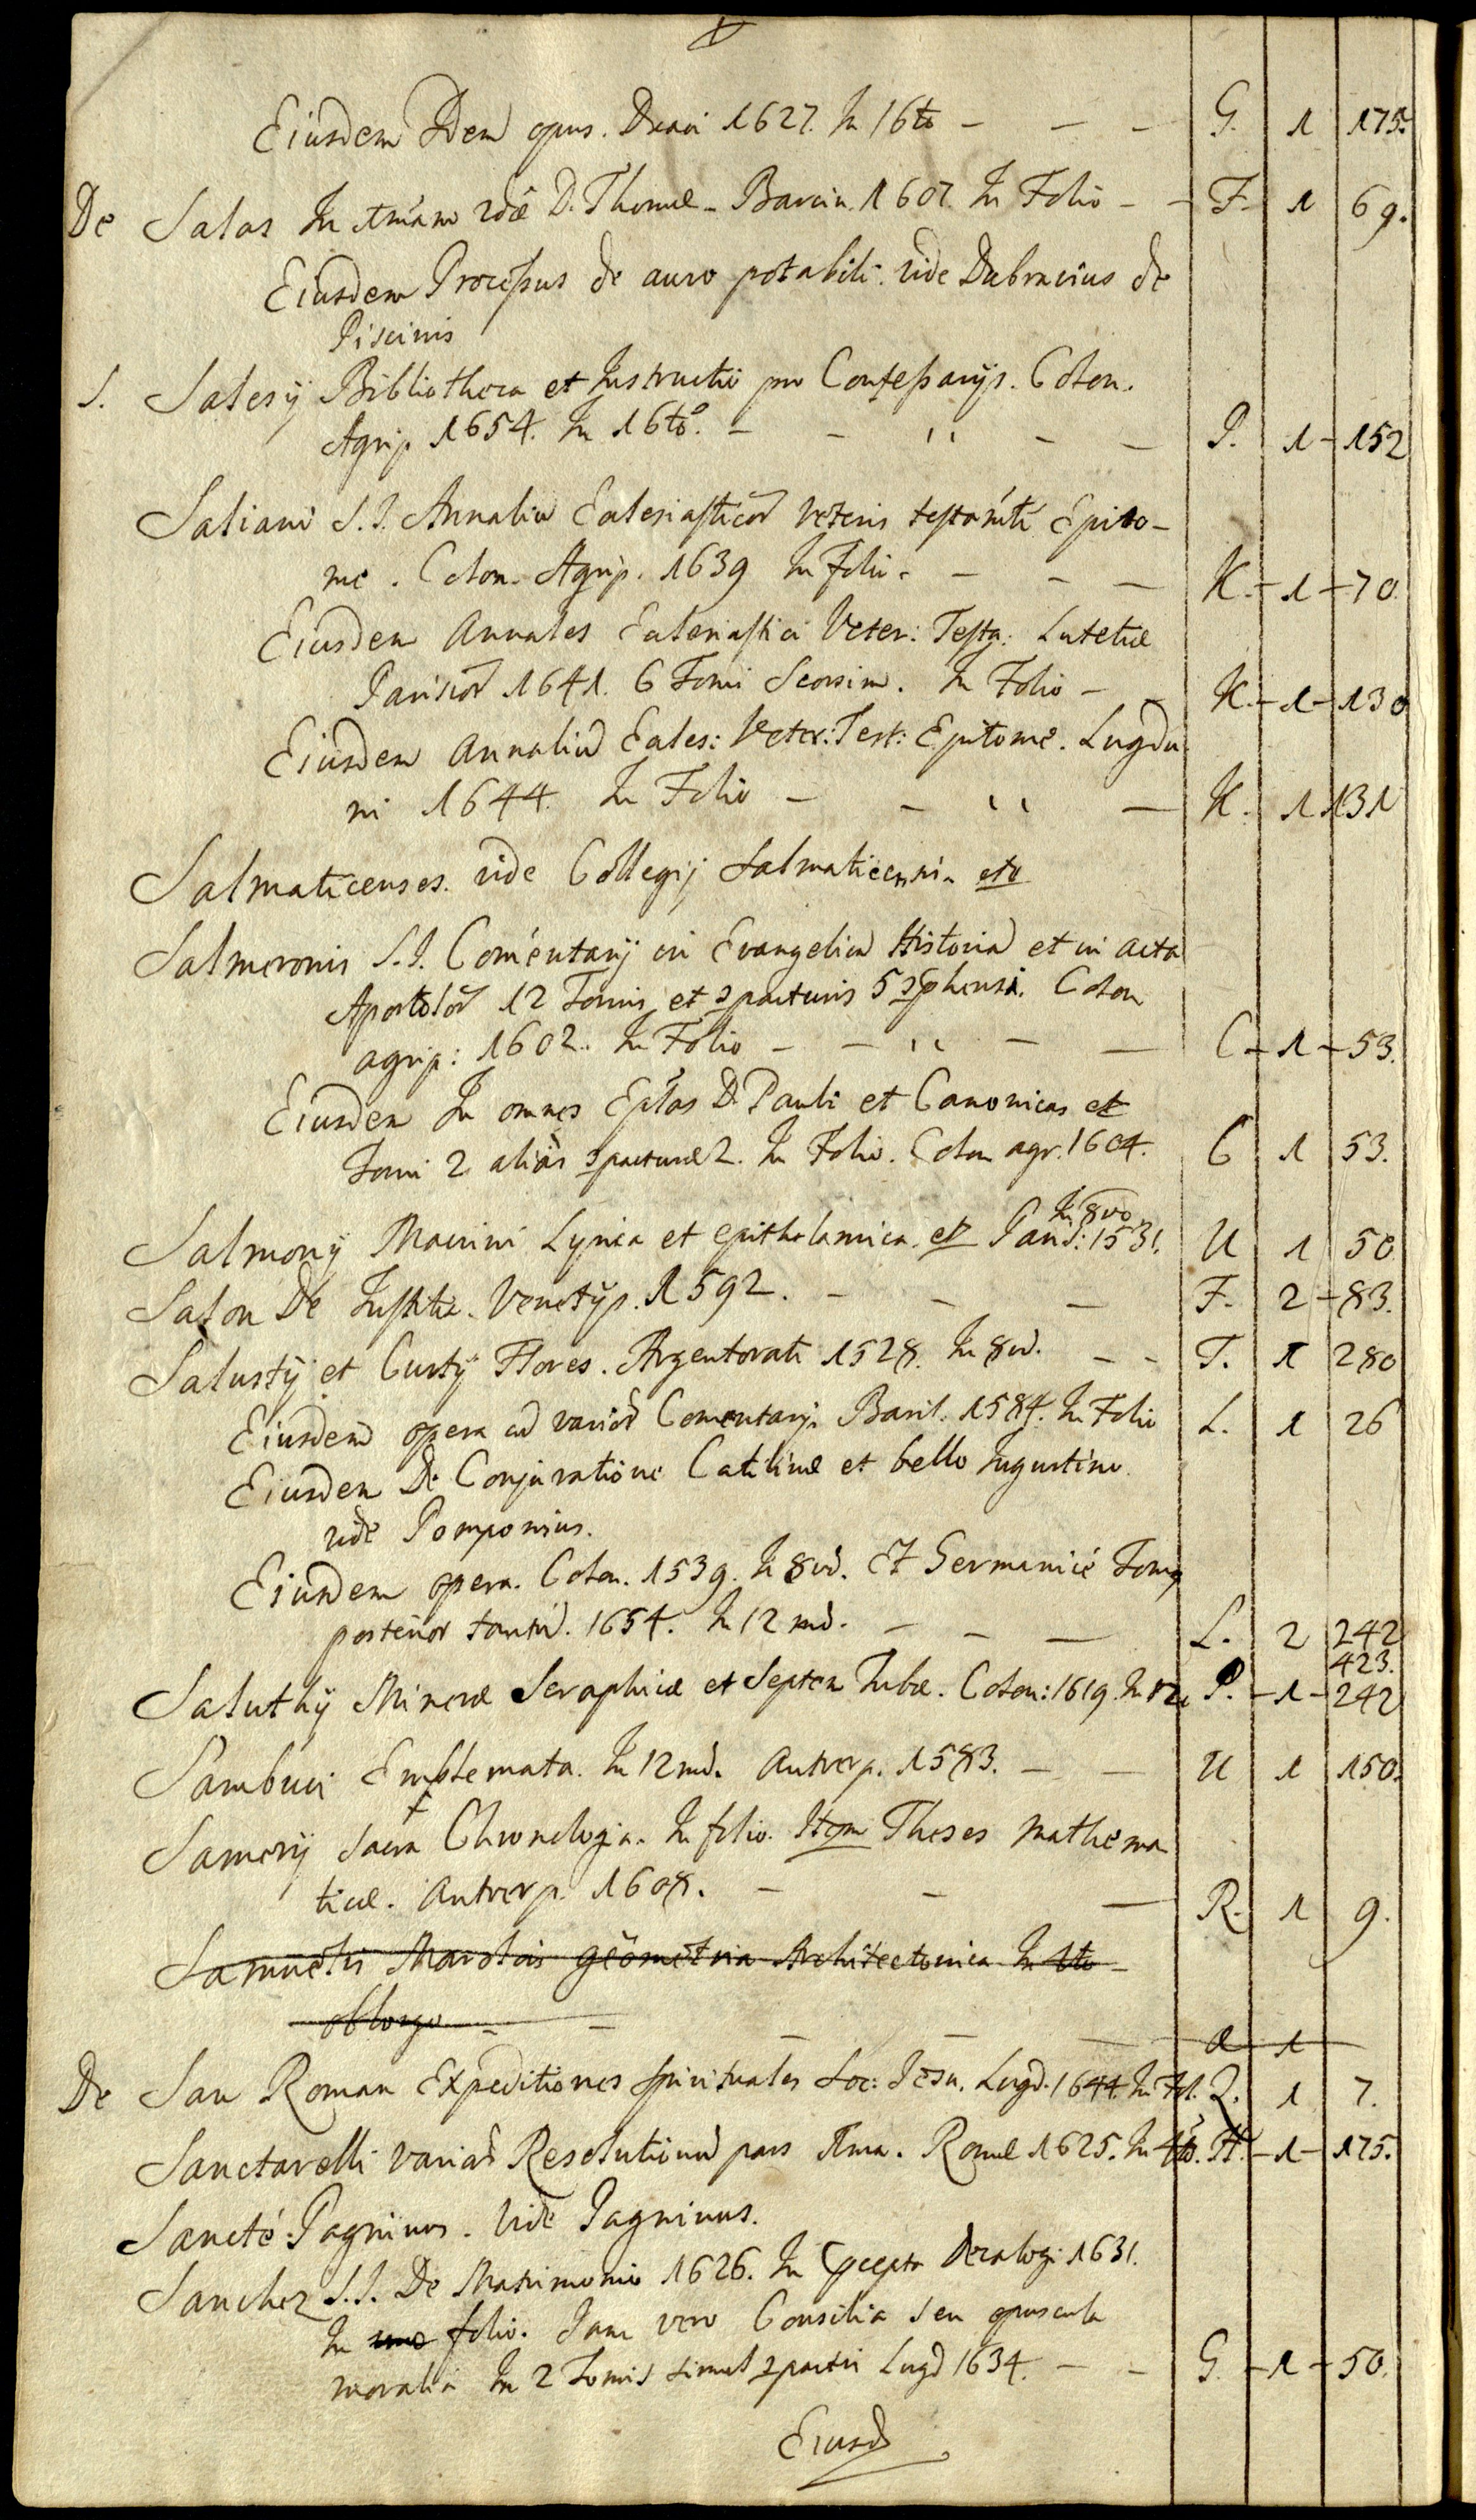 Eiusdem Idem opus. Duaci 1627. In 16to - - - G. 1 175.
De Salas In 2dæ D. Thomæ - Barcin. 1607. In Folio - - F. 1 69.
Eiusdem Processus de auro potabili. vide Dubravius de
Piscinis
S. Salesij Bibliotheca et Instructio pro Confessarijs. Colon.
Agrip 1654. In 16to. - - '' - - P. 1 - 152
Saliani S.J. Annaliū Eclesiasticor Veteris testam̃ti Epito-
me. Colon. Agrip. 1639 In folio. - - - K. - 1 - 70.
Eiusdem Annales Eclesiastici Veter: Testa: Lutetiæ
Parisior 1641. 6 Tomi Seorsim. In Folio - - K. - 1 - 130
Eiusdem Annaliū Ecles: Veter: Test: Epitome. Lugdu
ni 1644. In Folio - - '' - K. 1 131
Salmaticenses. vide Collegij Salmaticensis etc
Salmeronis S.J. Com̃entarij in Evangelicā Historiā et in acta
Apostolor 12 Tomis et 5 Colon
agrip: 1602. In Folio - - '' - - C - 1 - 53.
Eiusdem In omnes Eptas D. Pauli et Canonicas et
Tomi 2 aliàs 2. In Folio. Colon agr. 1604. C 1 53.
In 8vo.
Salmonij Macrini Lyrica et epithalamica et Paris: 1531. U 1 50
Salon De Justitia. Venetijs. 1592. - - - F. 2 - 83.
Salustij et Curtij Flores. Argentorati 1528. In 8vo. - - T. 1 280
Eiusdem opera cū varior Comentarijs Basil. 1584. In Folio L. 1 26
Eiusdem De Conjuratione Catilinæ et bello Iugurtino.
vide Pomponius.
Eiusdem opera. Colon. 1539. In 8vo. Et Germanicè Tomus
posterior tantū. 1654. In 12mo. - - - L. 2 242
423.
Saluthij Minervæ Seraphicæ et Septem Tubæ. Colon: 1619. In 12 P. - 1 - 242
Sambuci Emblemata. In 12mo. Antverp. 1583. - - U 1 150.
Samerij Sacra Chronologia. In folio. Item Theses mathema
ticæ. Antverp. 1608. - - - R. 1 9.
Samuelis Marolois geometria Architectonica In 4to -
oblongo - - - - - a 1
De San Roman Expeditiones spirituales Soc: Jesu. Lugd. 1644. In Fol. Q. 1 7.
Sanctarelli variar Resolutionū pars 1ma. Romæ 1625. In 4to. H. - 1 - 175.
Sancte Pagninus. Vide Pagninus.
Sanchez S.J. De Matrimonio 1626. In Decalogi 1631.
In uno folio. Jam vero Consilia seu opuscula
moralia In 2 Tomis simul Lugd 1634. - - G. - 1 - 50.
Eiusd